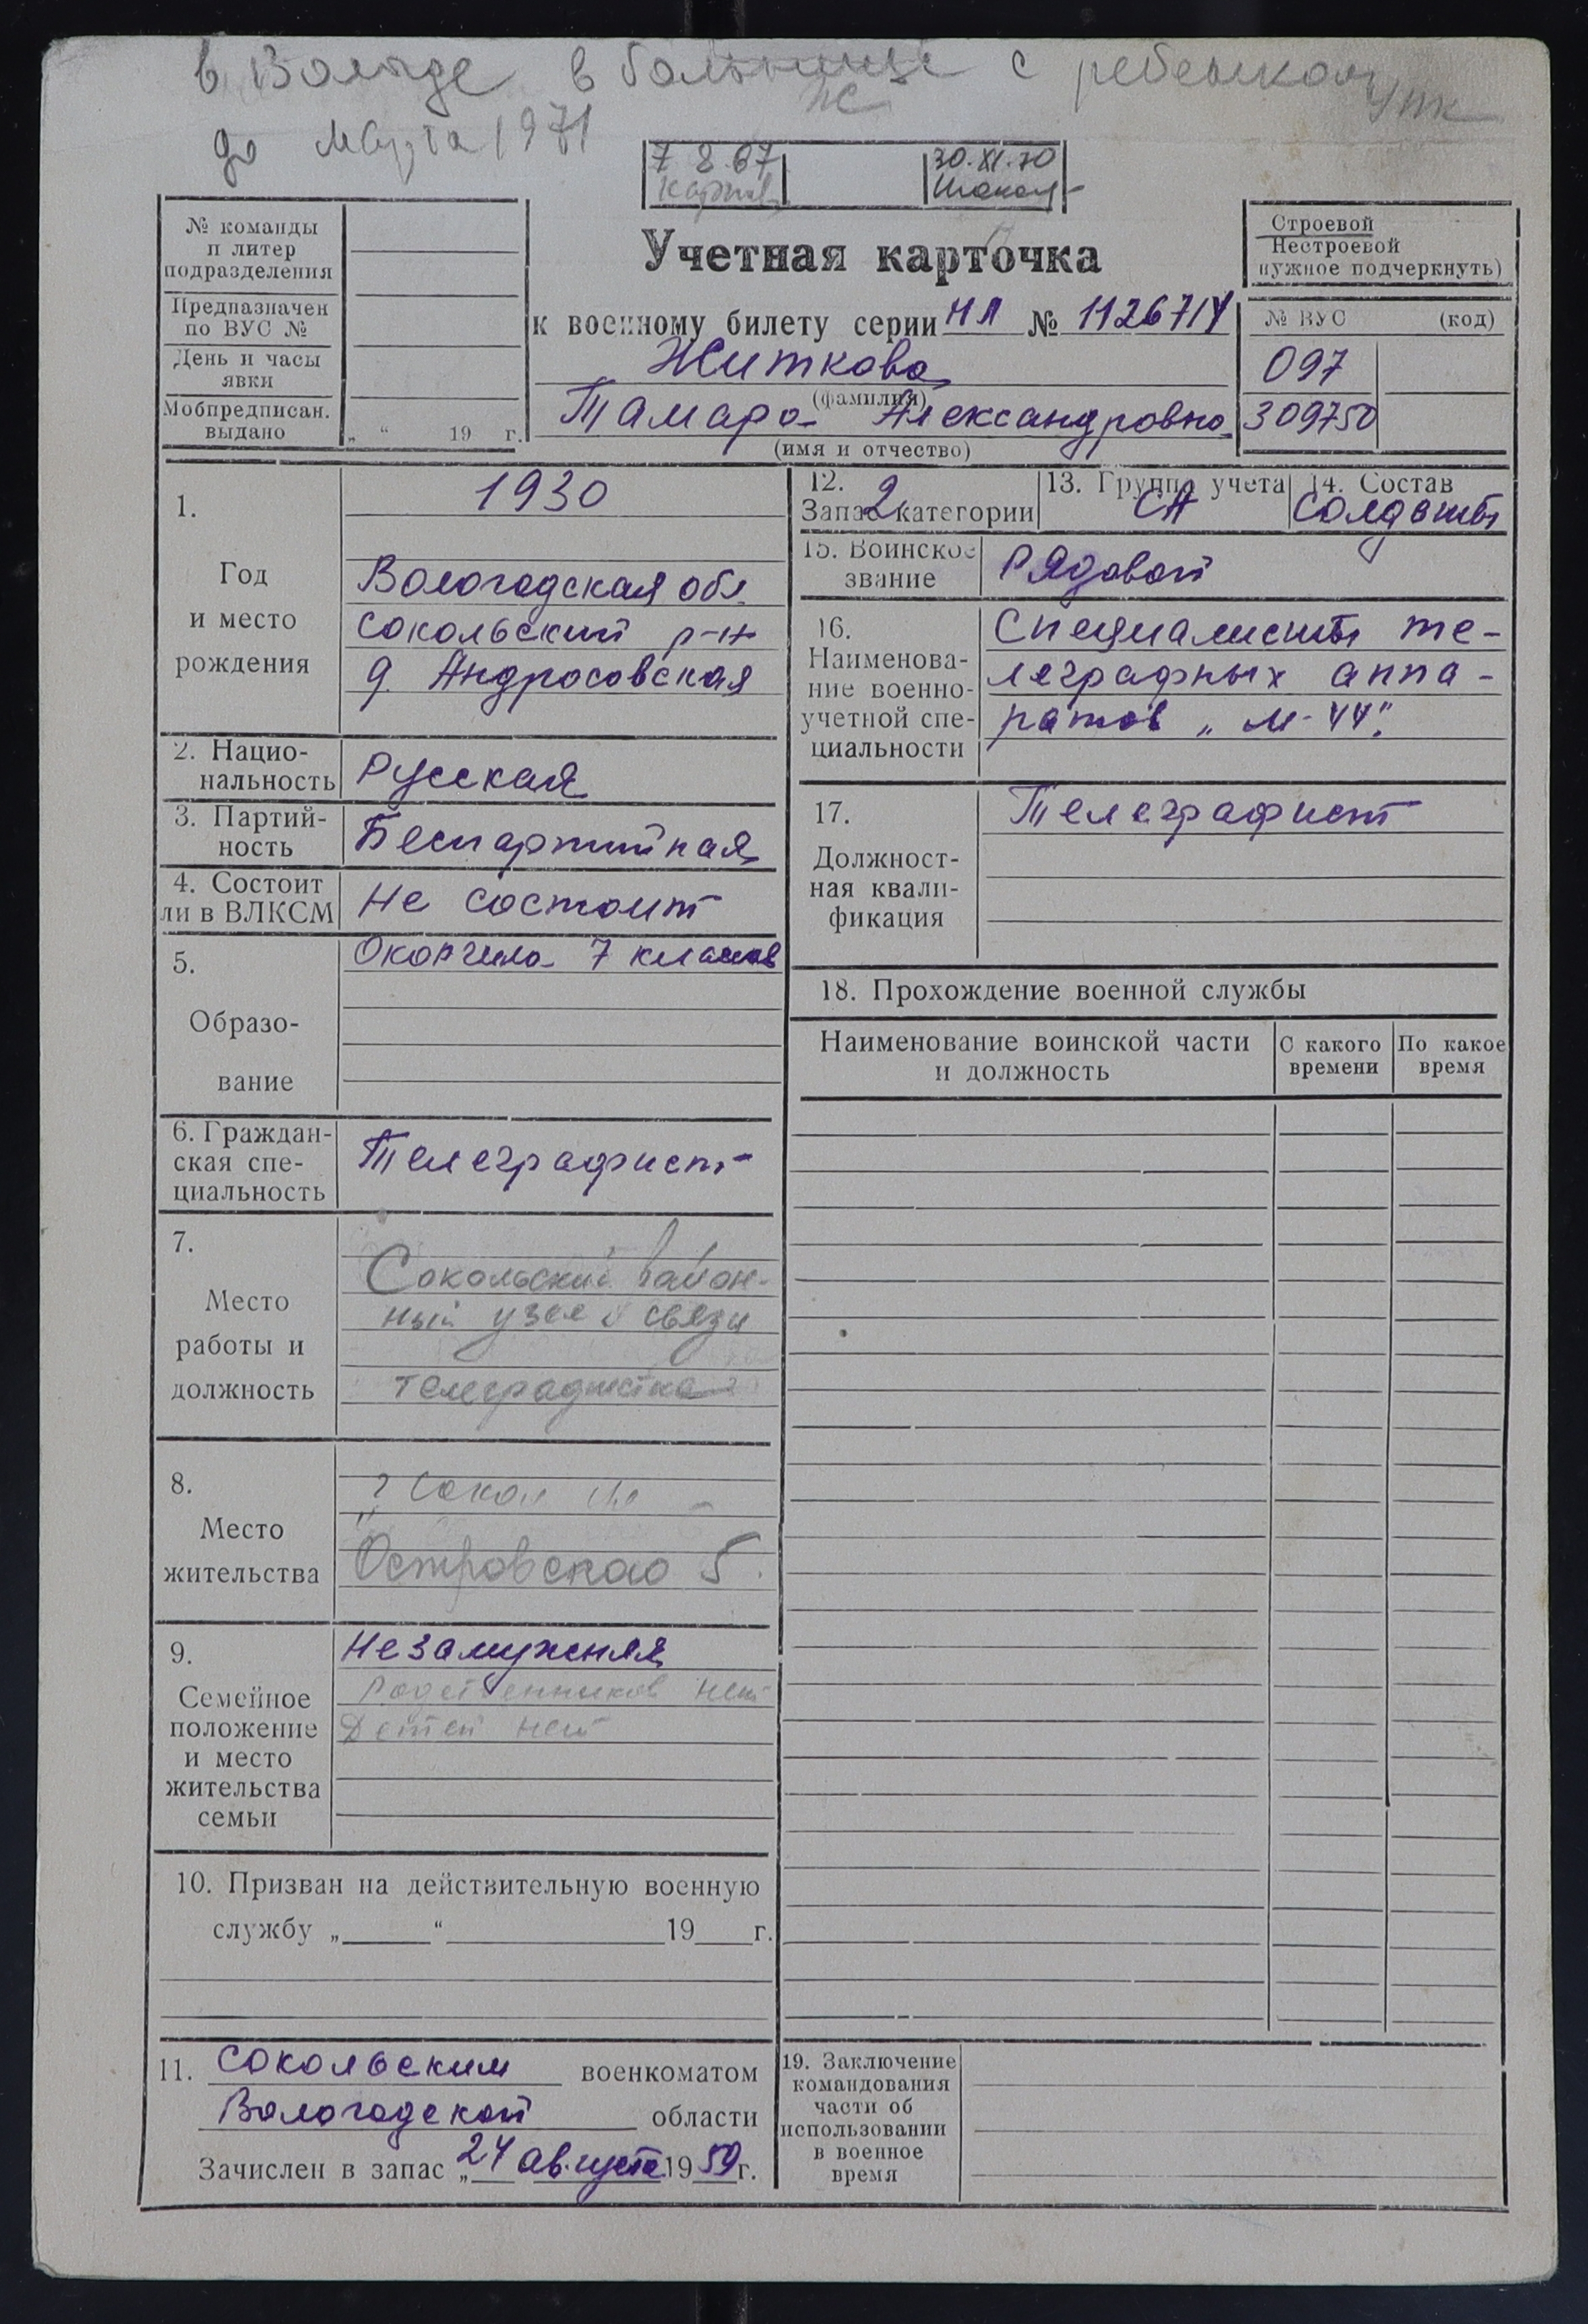 в Вологде в больнице с ребенком
до марта 1971
7 8.67
30.XI.70
№ команды
и литер
подразделения
Предназначен
по ВУС №
День и часы
явки
Мобпредписан.
выдано „ “ 19 г.
Учетная карточка
к военному билету серии НЛ № 1126714
Житкова
(фамилия)
Тамара Александровна
(имя и отчество)
Строевой
Нестроевой
нужное подчеркнуть)
№ ВУС (код)
097
309750
1.
Год
и место
рождения
1930
Вологодская обл.
Сокольский р-н
д. Андросовская
2. Нацио-
нальность
Русская
3. Партий-
ность
Беспартийная
4. Состоит
ли в ВЛКСМ
Не состоит
5.
Образо-
вание
Окончила 7 классов
6. Граждан-
ская спе-
циальность
Телеграфист
7.
Место
работы и
должность
Сокольский район-
ный узел связи
телеграфистка
8.
Место
жительства
г Сокол
Островского 5.
9.
Семейное
положение
и место
жительства
семьи
Незамужняя
Родственников нет
Детей нет
10. Призван на действительную военную
службу „ “ 19 г.
11. Сокольским военкоматом
Вологодской области
Зачислен в запас „24 августа 1959 г.
12.
Запас 2 категории
13. Группа учета
СА
14. Состав
Солдаты
15. Воинское
звание
Рядовой
16.
Наименова-
ние военно-
учетной спе-
циальности
Специалисты те-
леграфных аппа-
ратов „М-44".
17.
Должност-
ная квали-
фикация
Телеграфист
18. Прохождение военной службы
Наименование воинской части
и должность
С какого
времени
По какое
время
19. Заключение
командования
части об
использовании
в военное
время